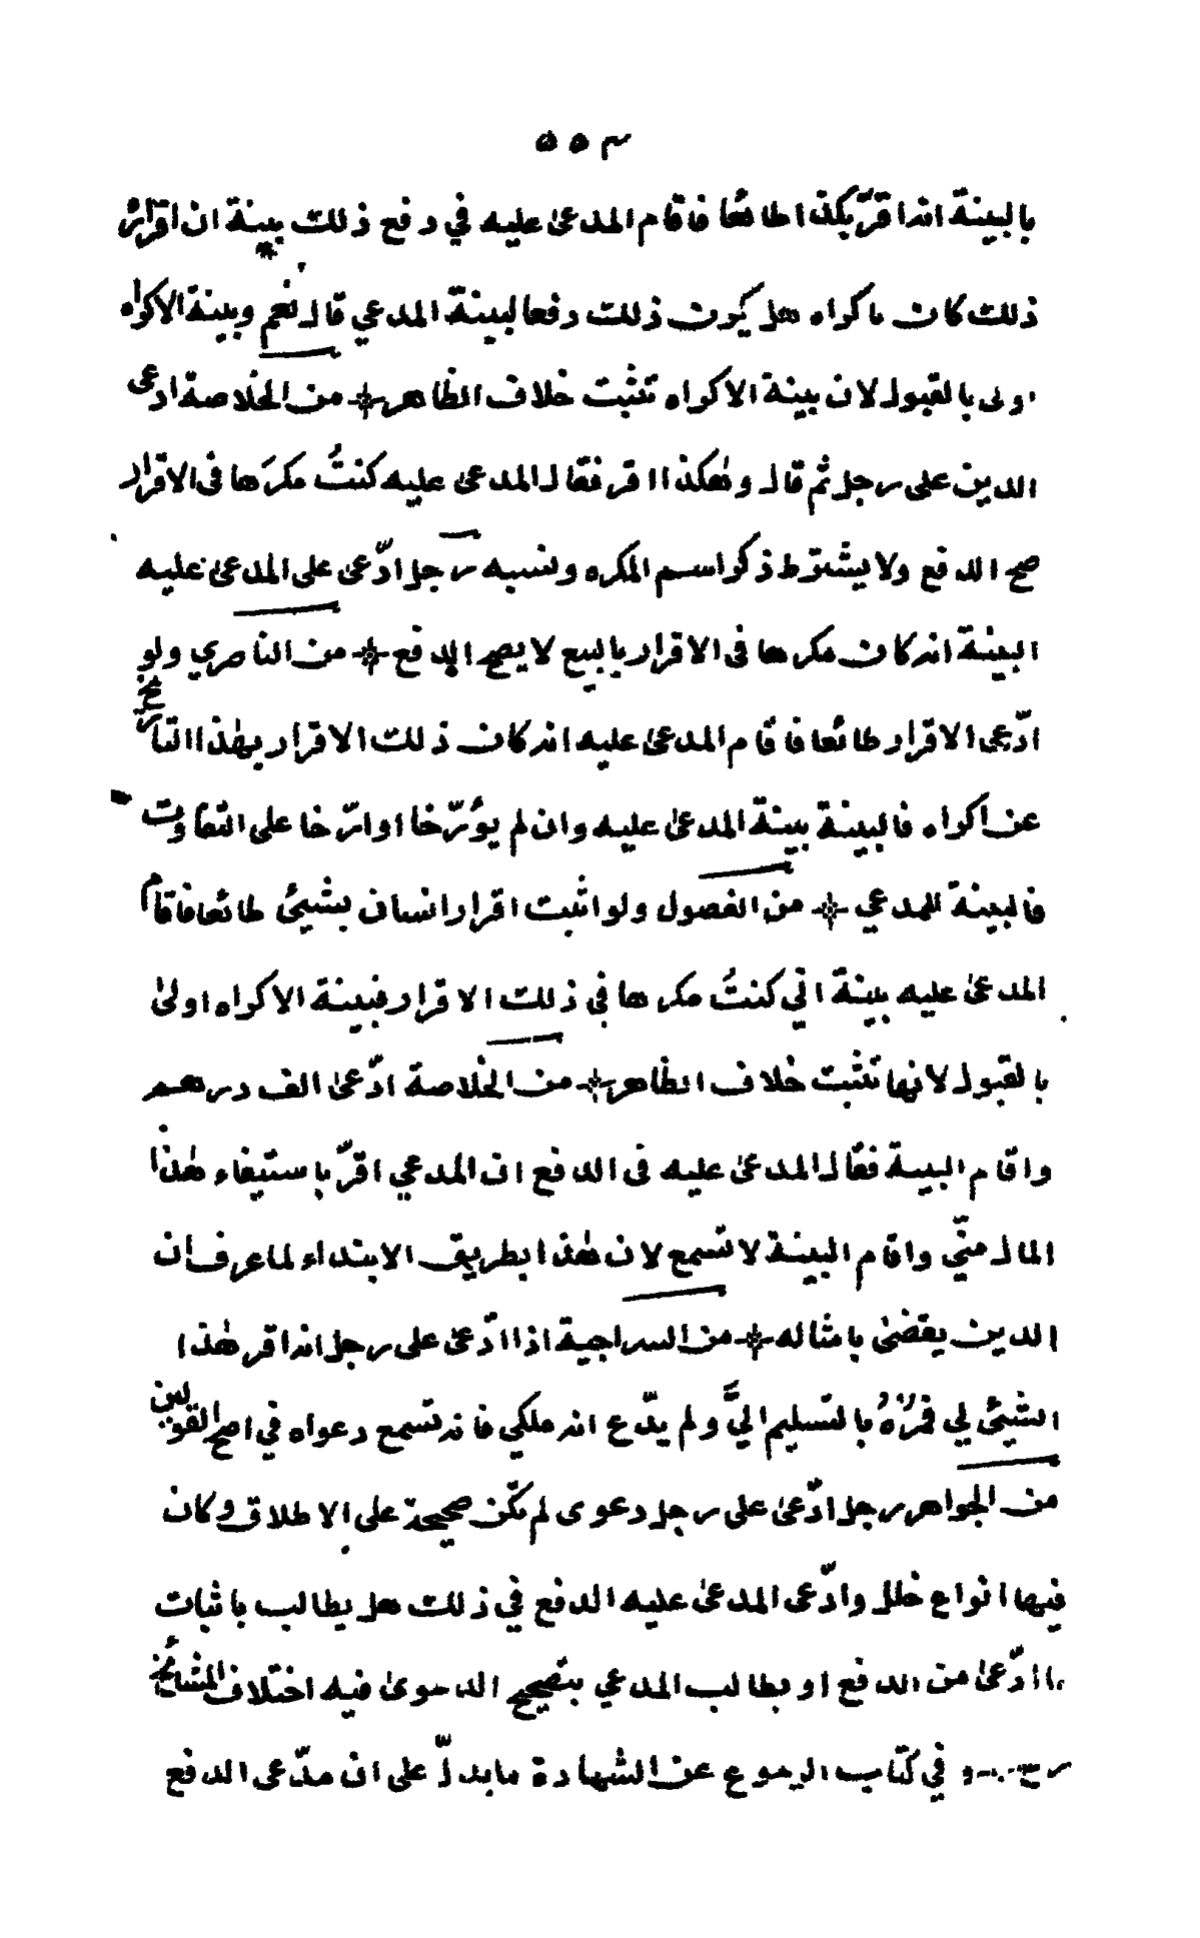 ٥٥٣
بالبينة انه اقرّ بكذا طائعا فاقام المدعىٰ عليه في دفع ذلك بينة ان اقراره
ذلك كان باكراه هل يكون ذلك دفعا لبينة المدعي قال نعم وبينة الاكراه
اولى بالقبول لان بينة الاكراه تثبت خلاف الظاهر من الخلاصة ادعى
الدين على رجل ثم قال وهٰكذا اقر فقال المدعىٰ عليه كنتُ مكرَها فى الاقرار
صح الدفع ولا يشترط ذكر اسم المكره ونسبه رجل ادّعىٰ على المدعىٰ عليه
البينة انه كان مكرها فى الاقرار بالبيع لا يصح الدفع من الناصري ولو
ادّعى الاقرار طائعا فاقام المدعىٰ عليه انه كان ذلك الاقرار بهٰذا التاريخ
عن اكراه فالبينة بينة المدعىٰ عليه وان لم يؤرّخا او ارّخا على التفاوت
فالبينة للمدعي من الفصول ولو اثبت اقرار انسان بشيئ طائعا فاقام
المدعىٰ عليه بينة اني كنتُ مكرها في ذلك الاقرار فبينة الاكراه اولىٰ
بالقبول لانها تثبت خلاف الظاهر من الخلاصة ادّعىٰ الف درهم
واقام البينة فقال المدعىٰ عليه فى الدفع ان المدعي اقرّ باستيفاء هٰذا
المال منّي واقام البينة لا تسمع لان هٰذا بطريق الابتداء لما عرف ان
الدين يقضىٰ بامثاله من السراجية اذا ادّعىٰ على رجل انه اقر هٰذا
الشيئ لي فمُرْهُ بالتسليم اليَّ ولم يدّع انه ملكي فانه تسمع دعواه في اصح القولين
من الجواهر رجل ادّعىٰ على رجل دعوى لم تكن صحيحة على الاطلاق وكان
فيها انواع خلل وادّعى المدعىٰ عليه الدفع في ذلك هل يطالب باثبات
ما ادّعىٰ من الدفع او يطالب المدعي بتصحيح الدعوىٰ فيه اختلاف المشائخ
في كتاب الرجوع عن الشهادة ما يدلّ على ان مدّعى الدفع